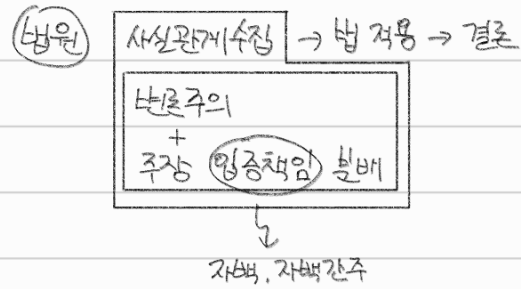 법원 사실관계수집 → 법 적용 → 결론
변론주의
+
주장 입증책임 분배
자백, 자백간주